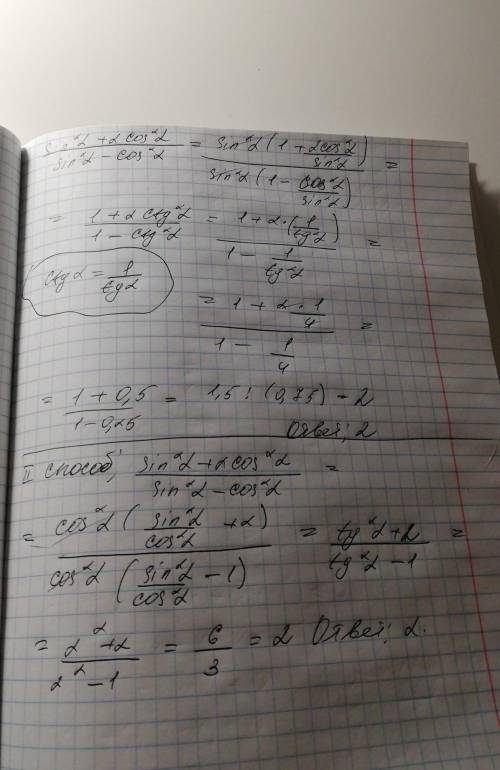 sin²α + 2cos²α / sin²α - cos²α = sin²α (1 + 2cos²α / sin²α) / sin²α (1 - cos²α / sin²α) =
= 1 + 2ctg²α / 1 - ctg²α = 1 + 2·(1 / tg²α) / 1 - 1 / tg²α =
ctgα = 1 / tgα
= 1 + 2·1 / 4 / 1 - 1 / 4 =
= 1 + 0,5 / 1 - 0,25 = 1,5 : (0,75) = 2
Ответ: 2
II способ; sin²α + 2cos²α / sin²α - cos²α =
= cos²α (sin²α / cos²α + 2) / cos²α (sin²α / cos²α - 1) = tg²α + 2 / tg²α - 1 =
= 2² + 2 / 2² - 1 = 6 / 3 = 2 Ответ: 2.